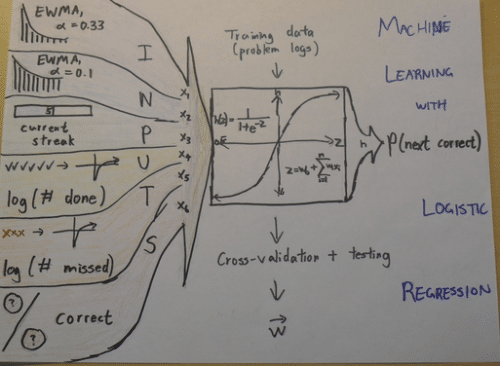 EWMA,
α = 0.33
EWMA,
α = 0.1
51
current
streak
✓✓✓✓✓ →
log(# done)
xxx →
log(# missed)
? / ?
correct
I
N
P
U
T
S
x₁
x₂
x₃
x₄
x₅
x₆
Training data
(problem logs)
h(z) = 1/(1+e^-z)
z
h
p(next correct)
Cross-validation + testing
w
MACHINE
LEARNING
WITH
LOGISTIC
REGRESSION